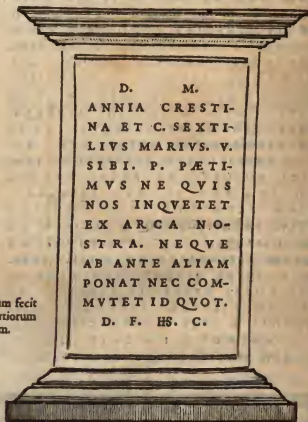 D. M.
ANNIA CRESTI-
NA ET C. SEXTI-
LIVS MARIVS. V.
SIBI. P. PÆTI-
MVS NE QVIS
NOS INQVETET
EX ARCA NO-
STRA. NEQVE
AB ANTE ALIAM
PONAT NEC COM-
MVTET ID QVOT.
D. F. HS. C.
um fecit
rtiorum
m.